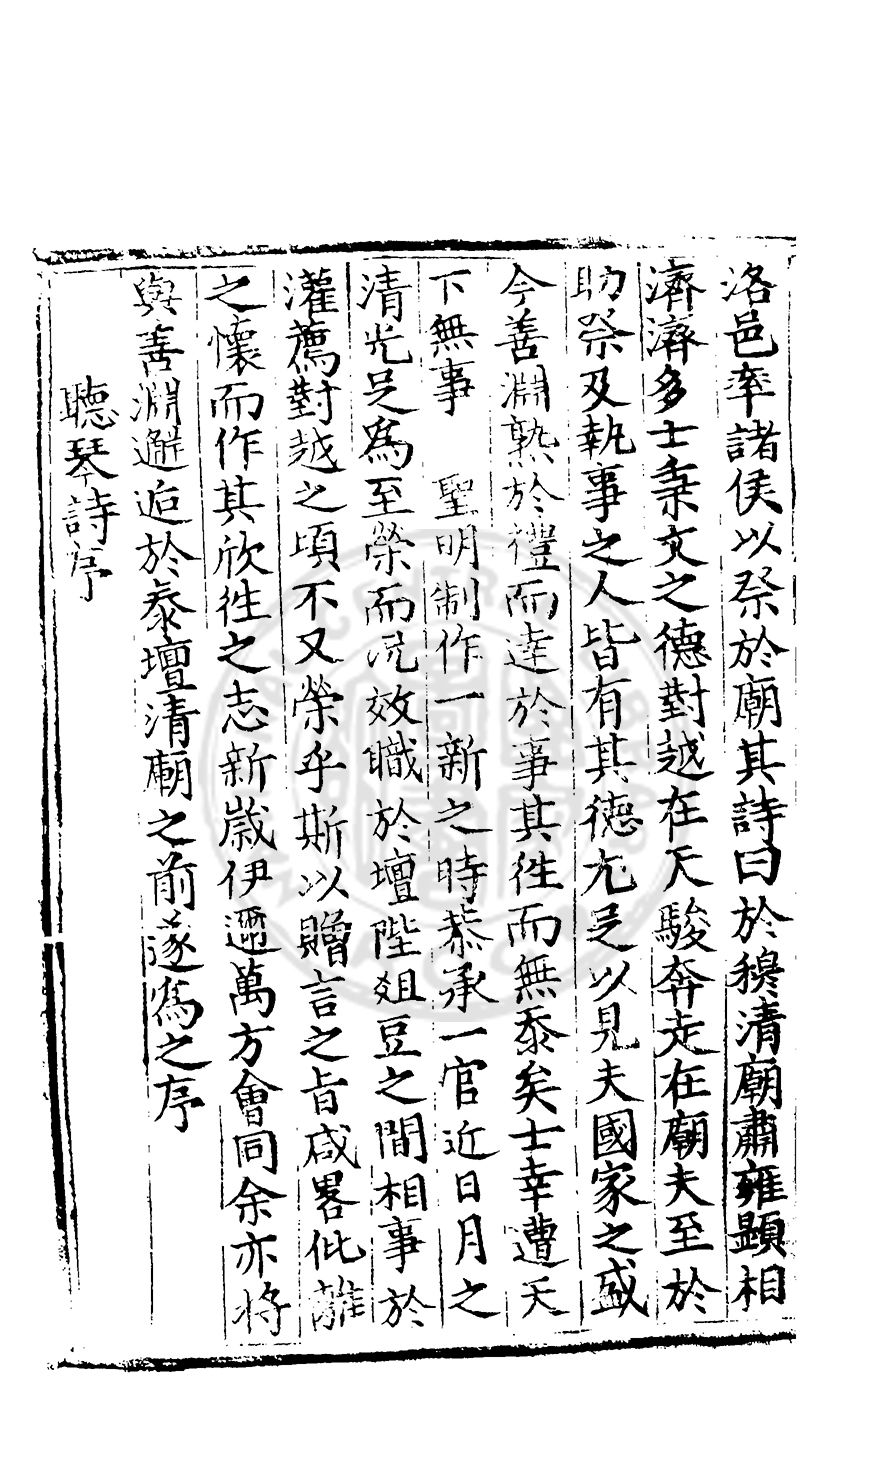 洛邑率諸侯以祭於廟其詩曰於穆清廟肅雍顯相
濟濟多士秉文之德對越在天駿奔走在廟夫至於
助祭及執事之人皆有其德尤足以見夫國家之盛
今善淵熟於禮而達於事其徃而無忝矣士幸遭天
下無事　聖明制作一新之時恭承一官近日月之
清光足爲至榮而況效職於壇陛俎豆之間相事於
灌薦對越之頃不又榮乎斯以贈言之旨咸畧仳離
之懷而作其欣徃之志新歲伊邇萬方會同余亦將
與善淵邂逅於泰壇清廟之前遂爲之序
聽琴詩序